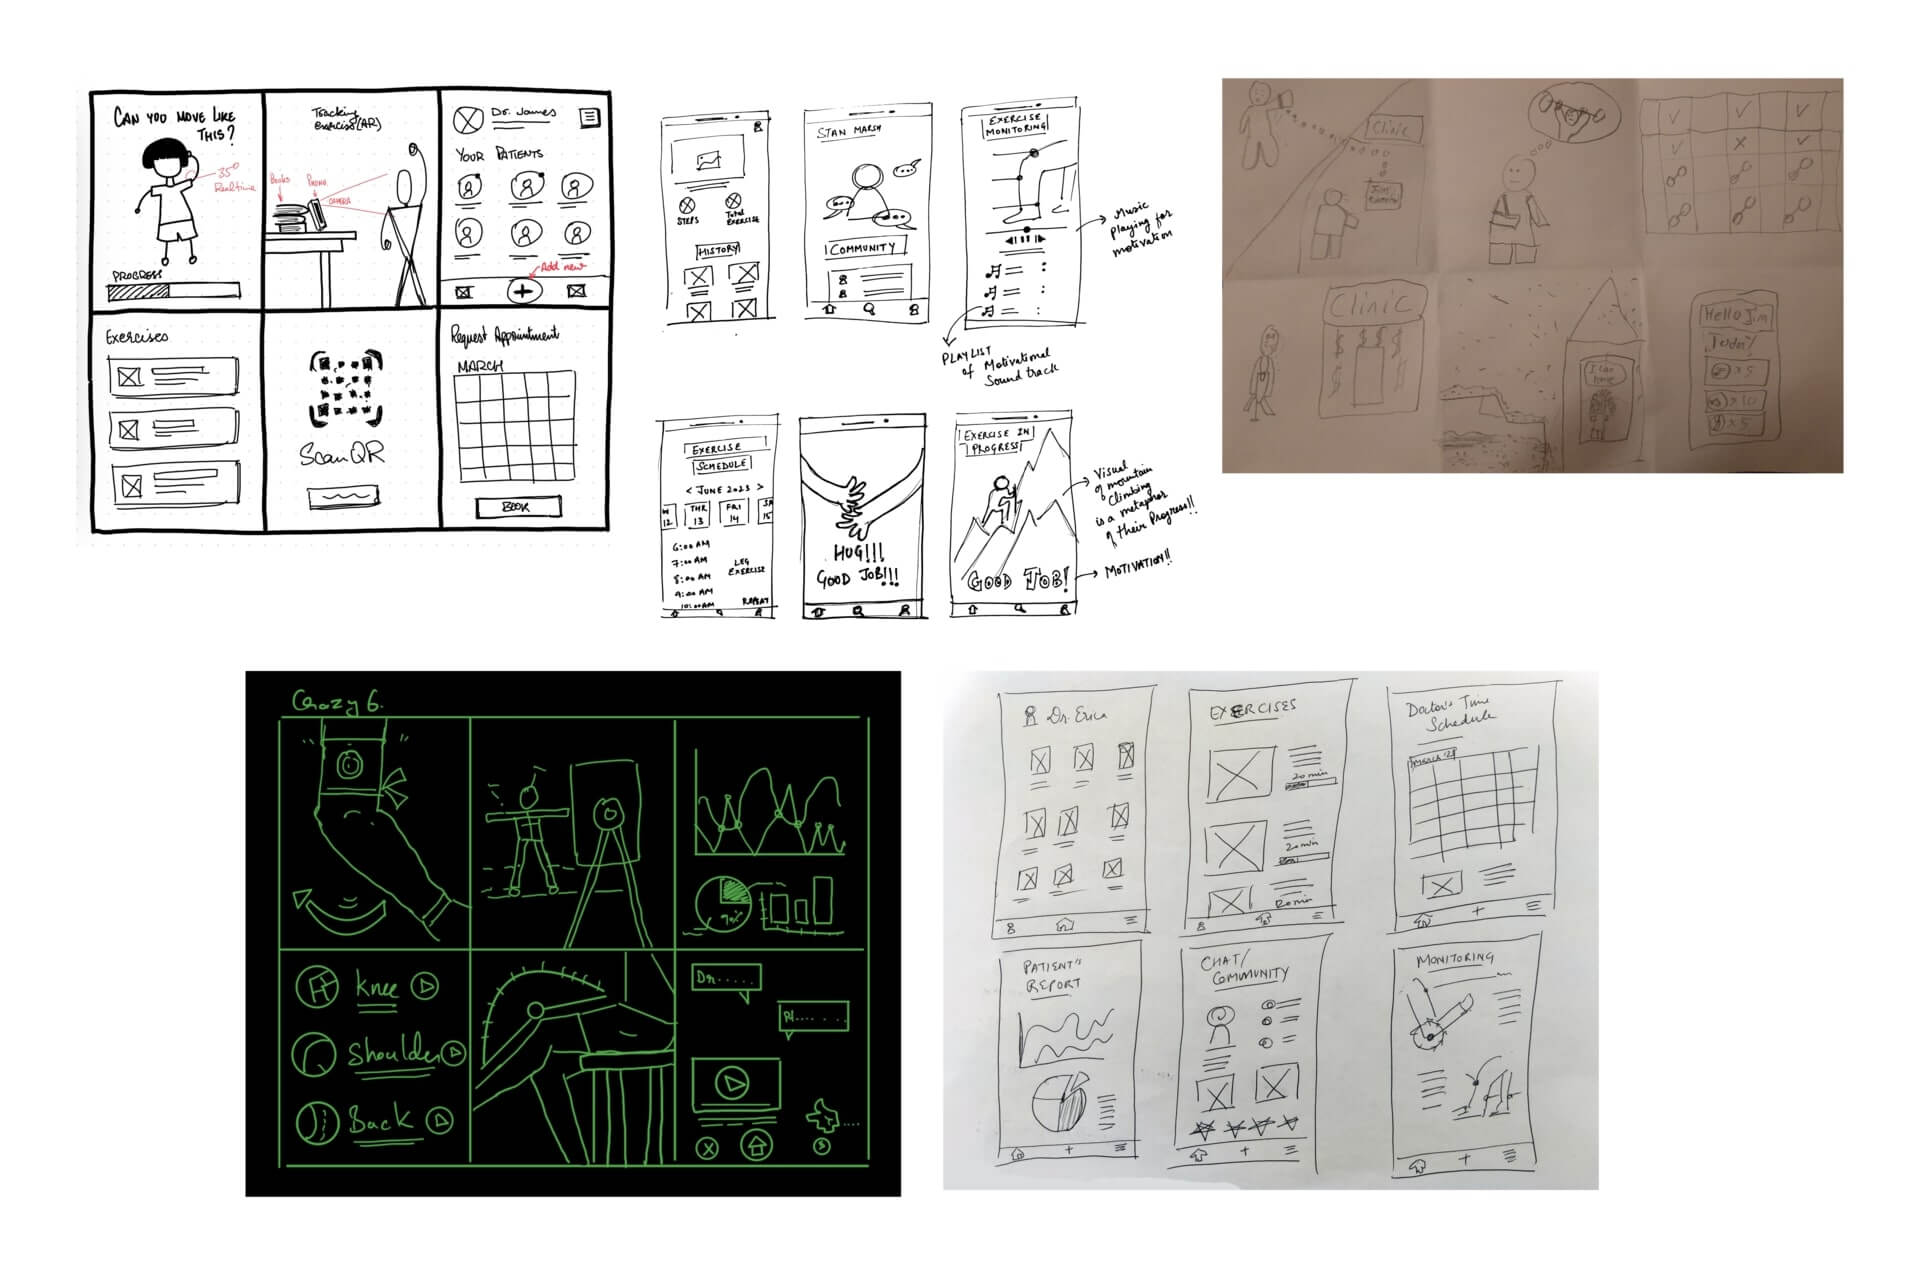 CAN YOU MOVE LIKE
THIS?
35°
Realtime
PROGRESS
Tracking
Exercise (AR)
Books
Phone
CAMERA
Dr. James
YOUR PATIENTS
Add new
Exercises
Scan QR
Request Appointment
MARCH
BOOK
STEPS
Total
EXERCISE
HISTORY
STAN MARSH
COMMUNITY
EXERCISE
MONITORING
Music
playing for
motivation
PLAYLIST
of Motivational
Sound track
EXERCISE
SCHEDULE
< JUNE 2023 >
12
THR
13
FRI
14
SA
15
6:00 AM
7:00 AM
8:00 AM
9:00 AM
10:00 AM
LEG
EXERCISE
REPEAT
HUG!!!
GOOD JOB!!!
EXERCISE IN
PROGRESS
GOOD JOB!
Visual
of mountain
Climbing
is a metaphor
of their Progress!!
MOTIVATION!!
Clinic
Clinic
$ $ $ $
I can
Hello Jim
Today
x 5
x 10
x 5
Crazy 6.
Knee
Shoulder
Back
Dr.....
Dr. Erica
EXERCISES
20 min
20 min
20 min
Doctor's Time
Schedule
PATIENT'S
REPORT
CHAT/
COMMUNITY
MONITORING